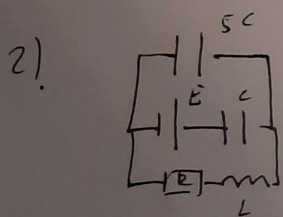 2).
5C
E C
R
L